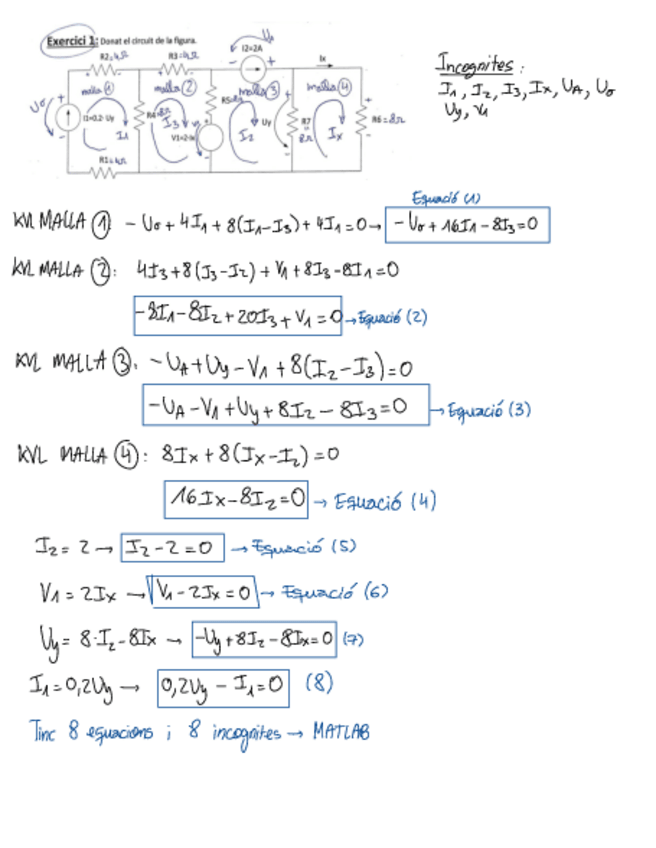 Exercici 1: Donat el circuit de la figura.
Uₐ
I2=2A
R2=4Ω R3=4Ω Ix
malla ① malla ② malla ③ malla ④
U₀ I1=0.2·Uy I₁ R4=8Ω I₃ R5=8Ω V1=2·Ix I₂ Uy R7 8Ω Ix R6=8Ω
R1=4Ω
Incognites:
I₁, I₂, I₃, Ix, U_A, U₀
Uy, V₁
Equació (1)
KVL MALLA ①: - U₀ + 4I₁ + 8(I₁-I₃) + 4I₁ = 0 → - U₀ + 16I₁ - 8I₃ = 0
KVL MALLA ②: 4I₃ + 8(I₃-I₂) + V₁ + 8I₃ - 8I₁ = 0
-8I₁ - 8I₂ + 20I₃ + V₁ = 0 → Equació (2)
KVL MALLA ③: - U_A + Uy - V₁ + 8(I₂-I₃) = 0
- U_A - V₁ + Uy + 8I₂ - 8I₃ = 0 → Equació (3)
KVL MALLA ④: 8Ix + 8(Ix-I₂) = 0
16Ix - 8I₂ = 0 → Equació (4)
I₂ = 2 → I₂ - 2 = 0 → Equació (5)
V₁ = 2Ix → V₁ - 2Ix = 0 → Equació (6)
Uy = 8·I₂ - 8Ix → -Uy + 8I₂ - 8Ix = 0 (7)
I₁ = 0,2Uy → 0,2Uy - I₁ = 0 (8)
Tinc 8 equacions i 8 incognites → MATLAB